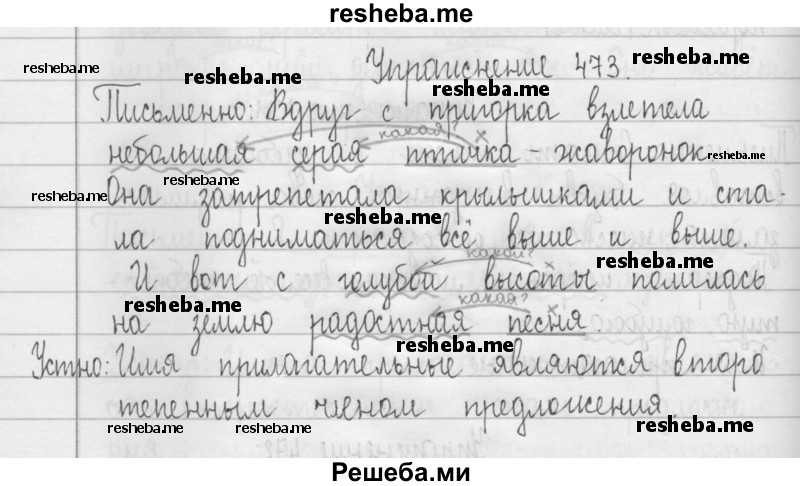 resheba.me
Упражнение 473.
resheba.me
resheba.me
resheba.me
resheba.me
Письменно: Вдруг с пригорка взлетела
какая?
небольшая серая птичка - жаворонок
resheba.me
resheba.me
resheba.me
Она затрепетала крылышками и ста-
resheba.me
ла подниматься всё выше и выше.
какой?
И вот с голубой высоты полилась
resheba.me
resheba.me
какая?
на землю радостная песня
resheba.me
Устно: Имя прилагательные являются второ
степенным членом предложения
resheba.me
resheba.me
resheba.me
Решеба.ми